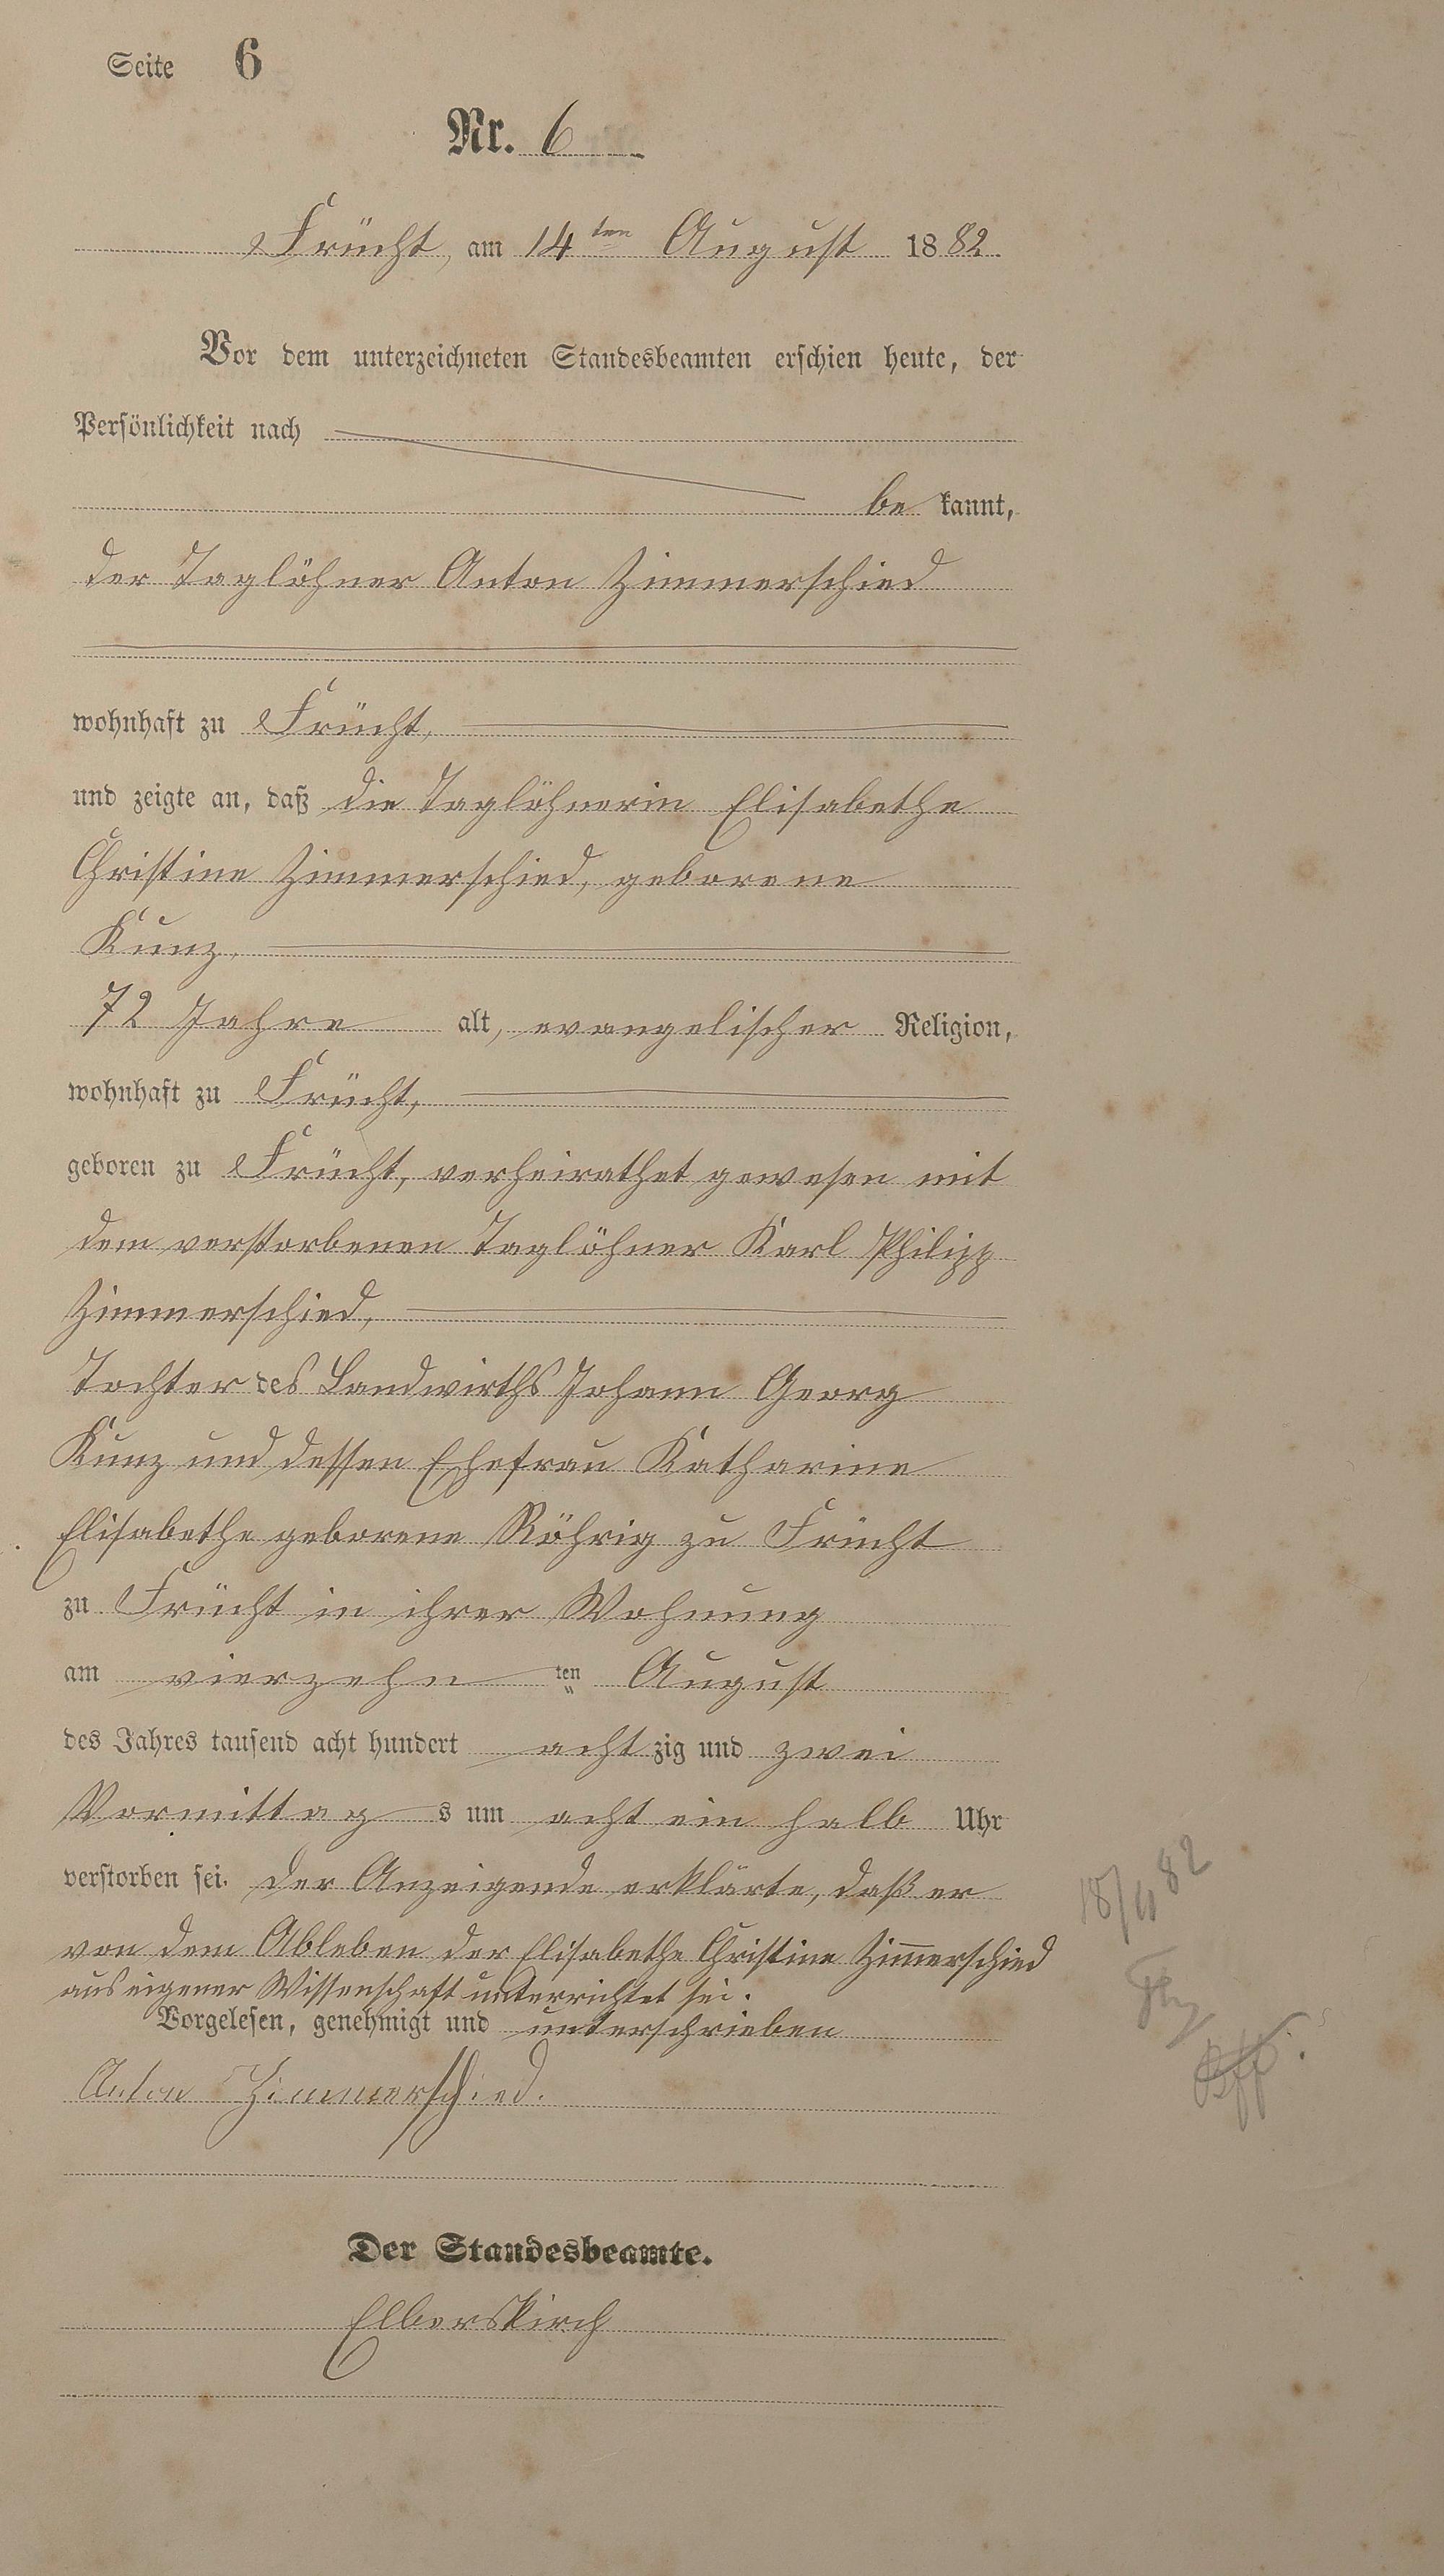 Seite 6
Nr. 6
Frücht, am 14ten August 1882
Vor dem unterzeichneten Standesbeamten erschien heute, der
Persönlichkeit nach
be kannt,
der Taglöhner Anton Zimmerschied
wohnhaft zu Frücht,
und zeigte an, daß die Taglöhnerin Elisabethe
Christine Zimmerschied, geborene
Kunz,
72 Jahre alt, evangelischer Religion,
wohnhaft zu Frücht,
geboren zu Frücht, verheirathet gewesen mit
dem verstorbenen Taglöhner Karl Philipp
Zimmerschied,
Tochter des Landwirths Johann Georg
Kunz und dessen Ehefrau Katharine
Elisabethe geborene Röhrig zu Frücht
zu Frücht in ihrer Wohnung
am vierzehn ten August
des Jahres tausend acht hundert acht zig und zwei
Vormittag s um acht ein halb Uhr
verstorben sei. Der Anzeigende erklärte, daß er
von dem Ableben der Elisabethe Christine Zim̅erschied
aus eigener Wissenschaft unterrichtet sei.
Vorgelesen, genehmigt und unterschrieben
Anton Zimmerschied.
Der Standesbeamte.
Elberskirch
18/11 82